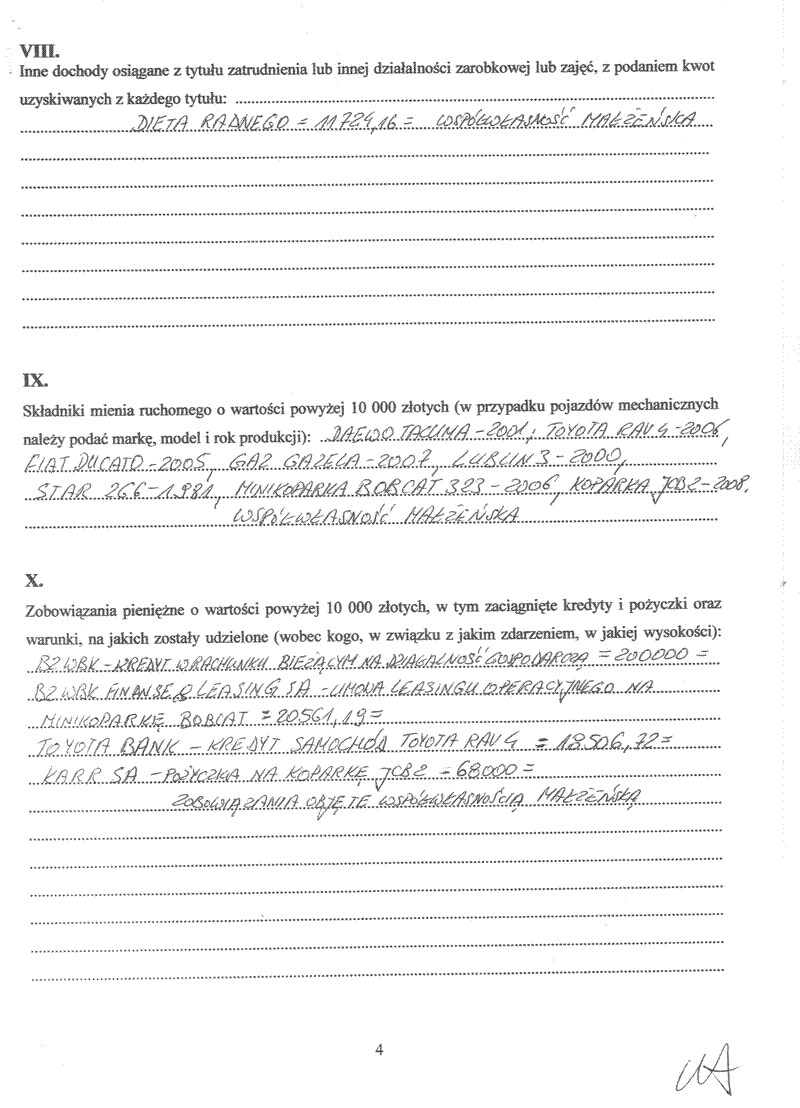 VIII.
Inne dochody osiągane z tytułu zatrudnienia lub innej działalności zarobkowej lub zajęć, z podaniem kwot
uzyskiwanych z każdego tytułu:
DIETA RADNEGO = 11724,16 = WSPÓŁWŁASNOŚĆ MAŁŻEŃSKA
IX.
Składniki mienia ruchomego o wartości powyżej 10 000 złotych (w przypadku pojazdów mechanicznych
należy podać markę, model i rok produkcji): DAEWO TACUMA-2001; TOYOTA RAV 4-2006,
FIAT DUCATO-2005, GAZ GAZELA-2007, LUBLIN 3-2000,
STAR 266-1981, MINIKOPARKA BOBCAT 323-2006, KOPARKA JCB2-2008,
WSPÓŁWŁASNOŚĆ MAŁŻEŃSKA
X.
Zobowiązania pieniężne o wartości powyżej 10 000 złotych, w tym zaciągnięte kredyty i pożyczki oraz
warunki, na jakich zostały udzielone (wobec kogo, w związku z jakim zdarzeniem, w jakiej wysokości):
BZ WBK - KREDYT W RACHUNKU BIEŻĄCYM NA DZIAŁALNOŚĆ GOSPODARCZĄ = 200000 =
BZ WBK FINANSE & LEASING SA - UMOWA LEASINGU OPERACYJNEGO NA
MINIKOPARKĘ BOBCAT = 20561,19 =
TOYOTA BANK - KREDYT SAMOCHÓD TOYOTA RAV 4 = 18506,72 =
KARR SA - POŻYCZKA NA KOPARKĘ JCB2 = 68000 =
ZOBOWIĄZANIA OBJĘTE WSPÓŁWŁASNOŚCIĄ MAŁŻEŃSKĄ
4